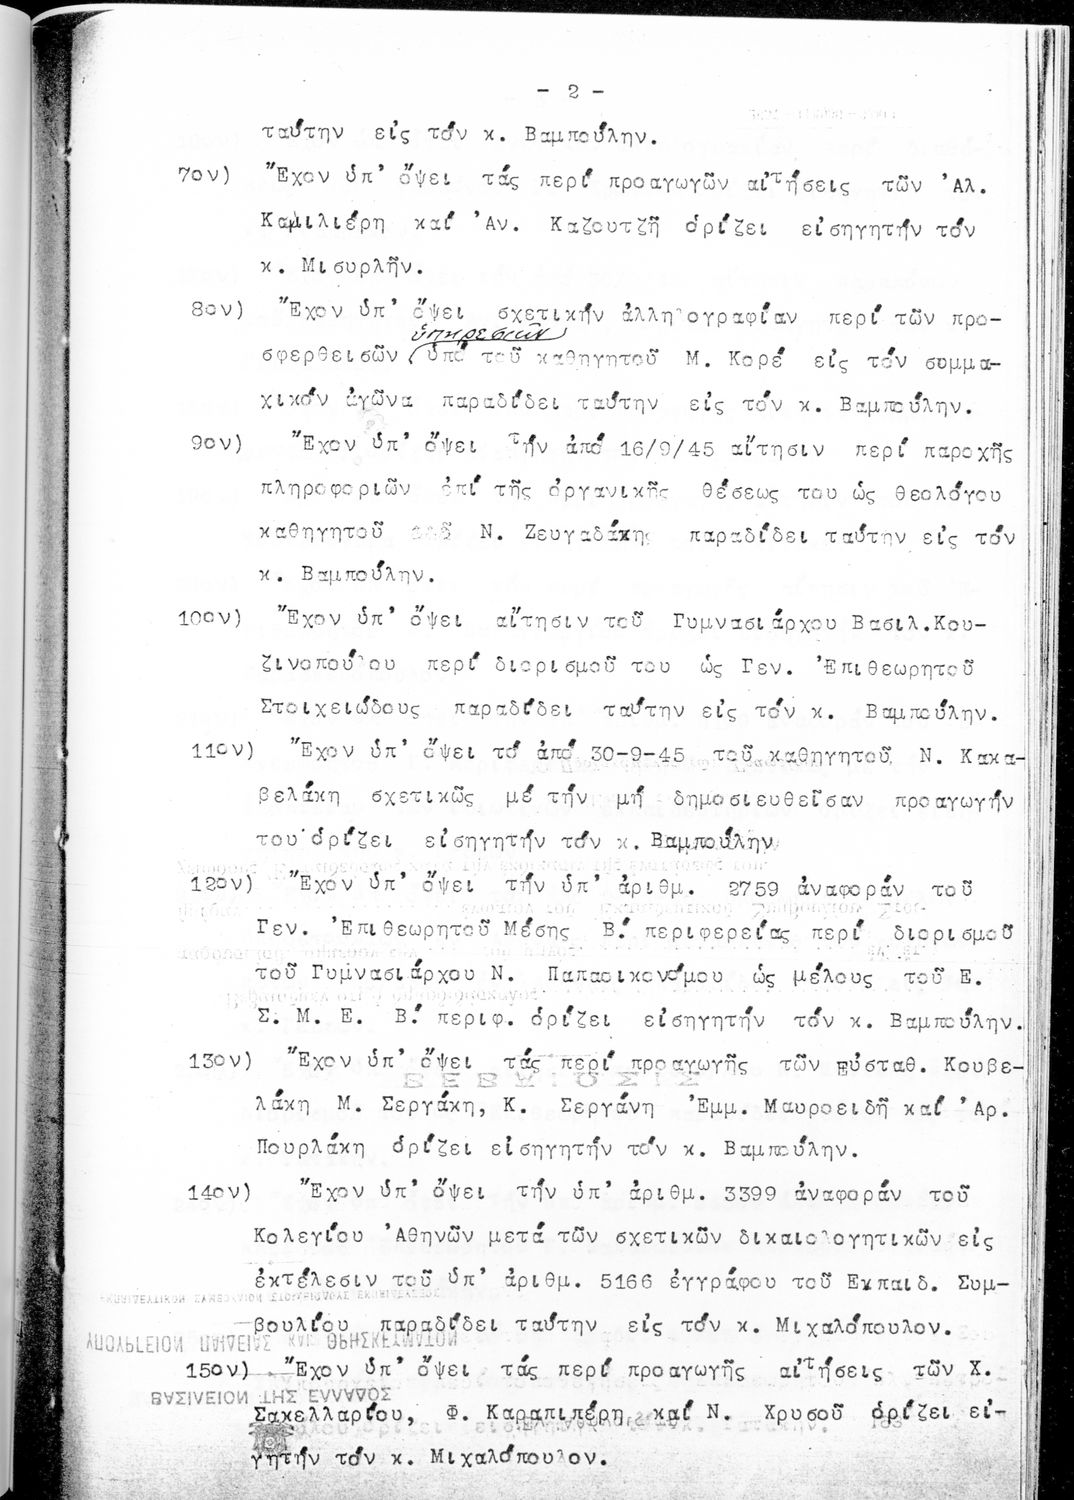 - 2 -
ταύτην εἰς τόν κ. Βαμπούλην.
7ον) Ἔχον ὑπ' ὄψει τάς περί προαγωγῶν αἰτήσεις τῶν Ἀλ.
Καμιλιέρη καί Ἀν. Καζουτζῆ ὁρίζει εἰσηγητήν τόν
κ. Μισυρλῆν.
8ον) Ἔχον ὑπ' ὄψει σχετικήν ἀλληλογραφίαν περί τῶν προ-
ὑπηρεσιῶν
σφερθεισῶν ὑπό τοῦ καθηγητοῦ Μ. Κορέ εἰς τόν συμμα-
χικόν ἀγῶνα παραδίδει ταύτην εἰς τόν κ. Βαμπούλην.
9ον) Ἔχον ὑπ' ὄψει τήν ἀπό 16/9/45 αἴτησιν περί παροχῆς
πληροφοριῶν ἐπί τῆς ὀργανικῆς θέσεως του ὡς θεολόγου
καθηγητοῦ τοῦ Ν. Ζευγαδάκης παραδίδει ταύτην εἰς τόν
κ. Βαμπούλην.
10ον) Ἔχον ὑπ' ὄψει αἴτησιν τοῦ Γυμνασιάρχου Βασιλ.Κου-
ζινοπούλου περί διορισμοῦ του ὡς Γεν. Ἐπιθεωρητοῦ
Στοιχειώδους παραδίδει ταύτην εἰς τόν κ. Βαμπούλην.
11ον) Ἔχον ὑπ' ὄψει τό ἀπό 30-9-45 τοῦ καθηγητοῦ Ν. Κακα-
βελάκη σχετικῶς μέ τήν μή δημοσιευθεῖσαν προαγωγήν
του ὁρίζει εἰσηγητήν τόν κ. Βαμπούλην
12ον) Ἔχον ὑπ' ὄψει τήν ὑπ' ἀριθμ. 2759 ἀναφοράν τοῦ
Γεν. Ἐπιθεωρητοῦ Μέσης Β.' περιφερείας περί διορισμοῦ
τοῦ Γυμνασιάρχου Ν. Παπαοικονόμου ὡς μέλους τοῦ Ε.
Σ. Μ. Ε. Β.' περιφ. ὁρίζει εἰσηγητήν τόν κ. Βαμπούλην.
13ον) Ἔχον ὑπ' ὄψει τάς περί προαγωγῆς τῶν Εὐσταθ. Κουβε-
λάκη Μ. Σεργάκη, Κ. Σεργάνη Ἐμμ. Μαυροειδῆ καί Ἀρ.
Πουρλάκη ὁρίζει εἰσηγητήν τόν κ. Βαμπούλην.
14ον) Ἔχον ὑπ' ὄψει τήν ὑπ' ἀριθμ. 3399 ἀναφοράν τοῦ
Κολεγίου Ἀθηνῶν μετά τῶν σχετικῶν δικαιολογητικῶν εἰς
ἐκτέλεσιν τοῦ ὑπ' ἀριθμ. 5166 ἐγγράφου τοῦ Εκπαιδ. Συμ-
βουλίου παραδίδει ταύτην εἰς τόν κ. Μιχαλόπουλον.
15ον) Ἔχον ὑπ' ὄψει τάς περί προαγωγῆς αἰτήσεις τῶν Χ.
Σακελλαρίου, Φ. Καραπιπέρη καί Ν. Χρυσοῦ ὁρίζει εἰ-
γητήν τόν κ. Μιχαλόπουλον.